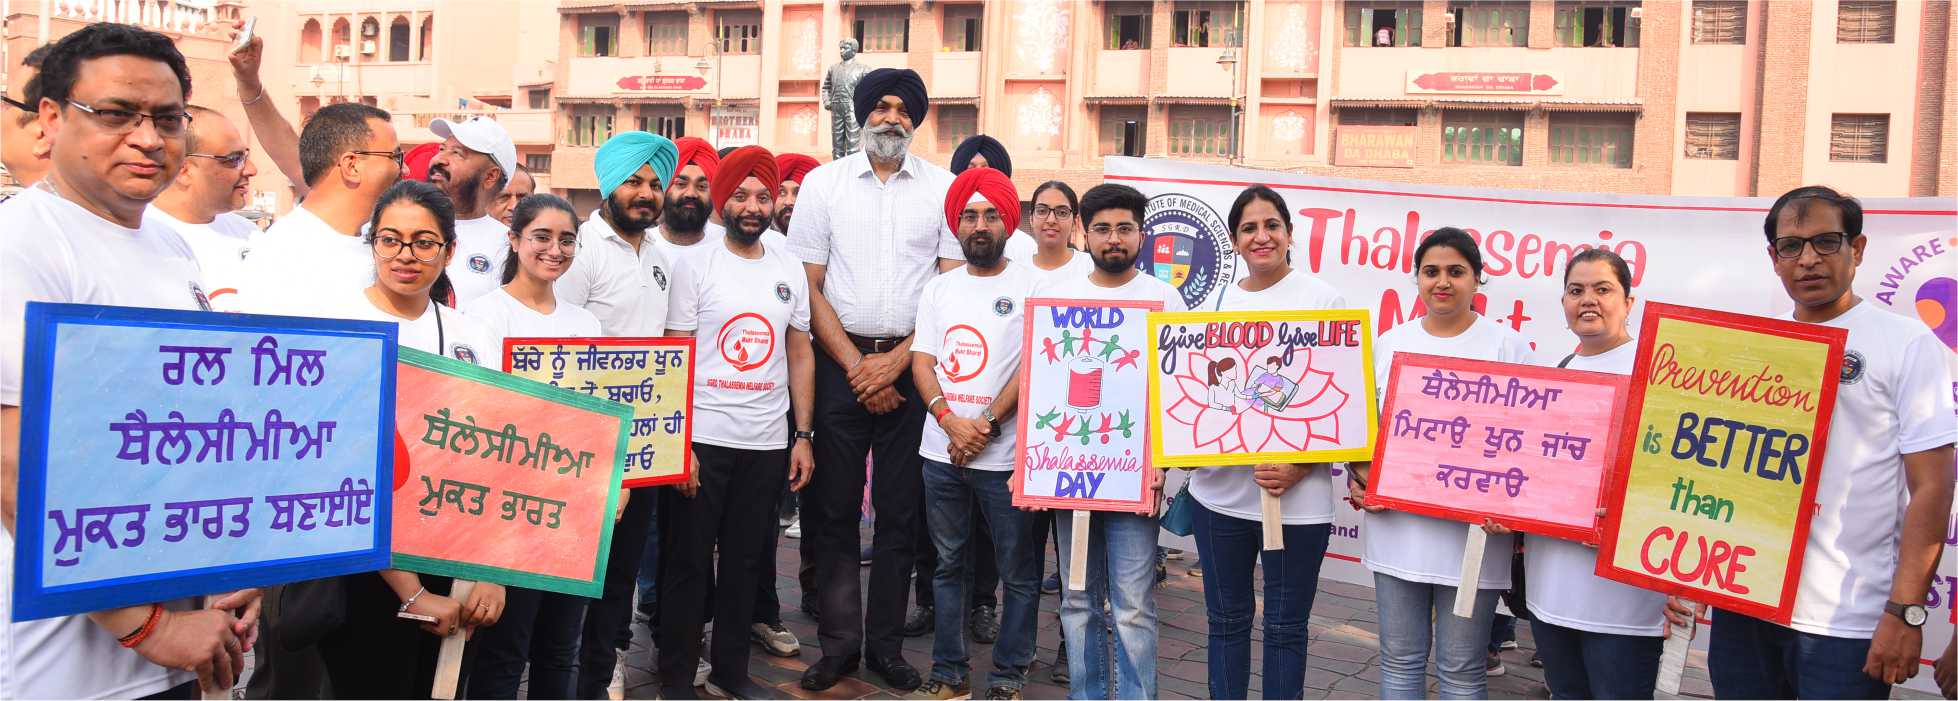 ਭਰਾਵਾਂ ਦਾ ਢਾਬਾ
BROTHERS
DHABA
ਭਰਾਵਾਂ ਦਾ ਢਾਬਾ
BHARAWAN DA DHABA
BHARAWAN
DA DHABA
ਰਲ ਮਿਲ
ਥੈਲੇਸੀਮੀਆ
ਮੁਕਤ ਭਾਰਤ ਬਣਾਈਏ
ਥੈਲੇਸੀਮੀਆ
ਮੁਕਤ ਭਾਰਤ
ਬੱਚੇ ਨੂੰ ਜੀਵਨਭਰ ਖੂਨ
ਬਚਾਓ,
ਹੀ
Thalassemia
Mukt Bharat
SGRD THALASSEMIA WELFARE SOCIETY
Thalassemia
Mukt Bharat
WELFARE SOCIETY
WORLD
Thalassemia
DAY
Give BLOOD Give LIFE
ਥੈਲੇਸੀਮੀਆ
ਮਿਟਾਉ ਖੂਨ ਜਾਂਚ
ਕਰਵਾਉ
Prevention
is BETTER
than
CURE
OF MEDICAL SCIENCES &
SGRD
Thalassemia
AWARE
and